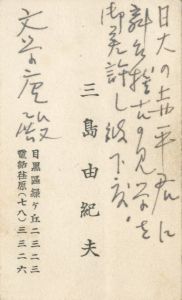 日大の土平君に
舞台稽古の見学を
御差許し被下度
三島由紀夫
文学座殿
目黒区緑ヶ丘二三二三
電話荏原(78)三三二六